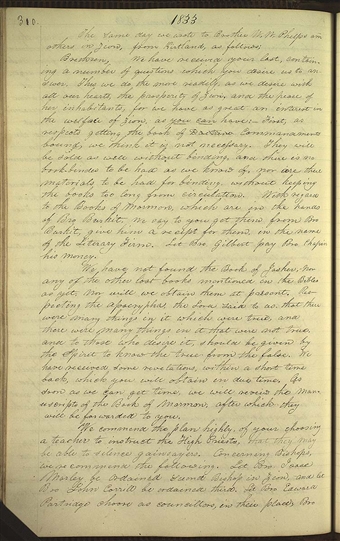 310.
1833
The same day we wrote to Brother W. W. Phelps and
others in Zion, from Kirtland, as follows;
Brethren, We have received your last, contain-
ing a number of questions which you desire us to an
swer. This we do the more readily, as we desire with
all our heart the prosperity of Zion, and the peace of
her inhabitants, for we have as great an interest in
the welfare of Zion, as you can have. First, as
respects getting the book of Commandments
bound, we think it is not necessary. They will
be sold as well without binding, and there is no
bookbinder to be had as we know of, nor are there
materials to be had for binding, without keeping
the books too long from circulation. With regard
to the Books of Mormon, which are in the hands
of Bro Burket, we say to you get them from Bro
Burket, give him a receipt for them in the name
of the Literary Firm. Let Bro. Gilbert pay Bro Chapin
his money.
We have not found the Book of Jasher, Nor
any of the other lost books mentioned in the bible
as yet, Nor will we obtain them at present. Re-
specting the Apocrypha the Lord said to us, that there
were many things in it which were true, and
there were many things in it that were not true
and to those who desire it, should be given by
the Spirit to know the true from the false. We
have received some revelations, within a short time
back, which you will obtain in due time. As
soon as we can get time, we will review the man
uscripts of the Book of Mormon, after which they
will be forwarded to you.
We commend the plan highly, of your choosing
a teacher to instruct the High Priests, that they may
be able to silence gainsayers. Concerning Bishops,
we recommend the following. Let Bro. Isaac
Morley be ordained second Bishop in Zion, and let
Bro John Corrill be ordained third. Let Bro Edward
Partridge choose as councillors, in their place, Bro